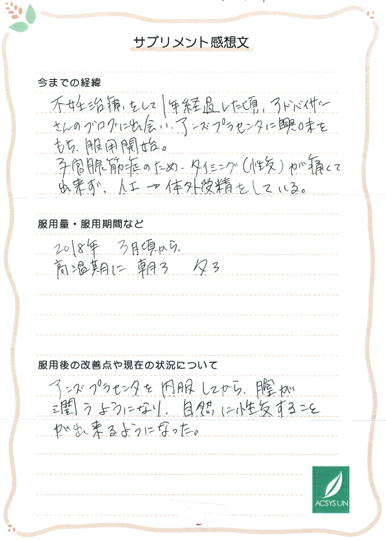 サプリメント感想文
今までの経緯
不妊治療をして1年経過した頃、アドバイザー
さんのブログに出会い、アンズプラセンタに興味を
もち、服用開始。
子宮腺筋症のため、タイミング(性交)が痛くて
出来ず、人工→体外受精をしている。
服用量・服用期間など
2018年 3月頃から、
高温期に 朝3 夕3
服用後の改善点や現在の状況について
アンズプラセンタを内服してから、膣が
潤うようになり、自然に性交すること
が出来るようになった。
ACSYSUN